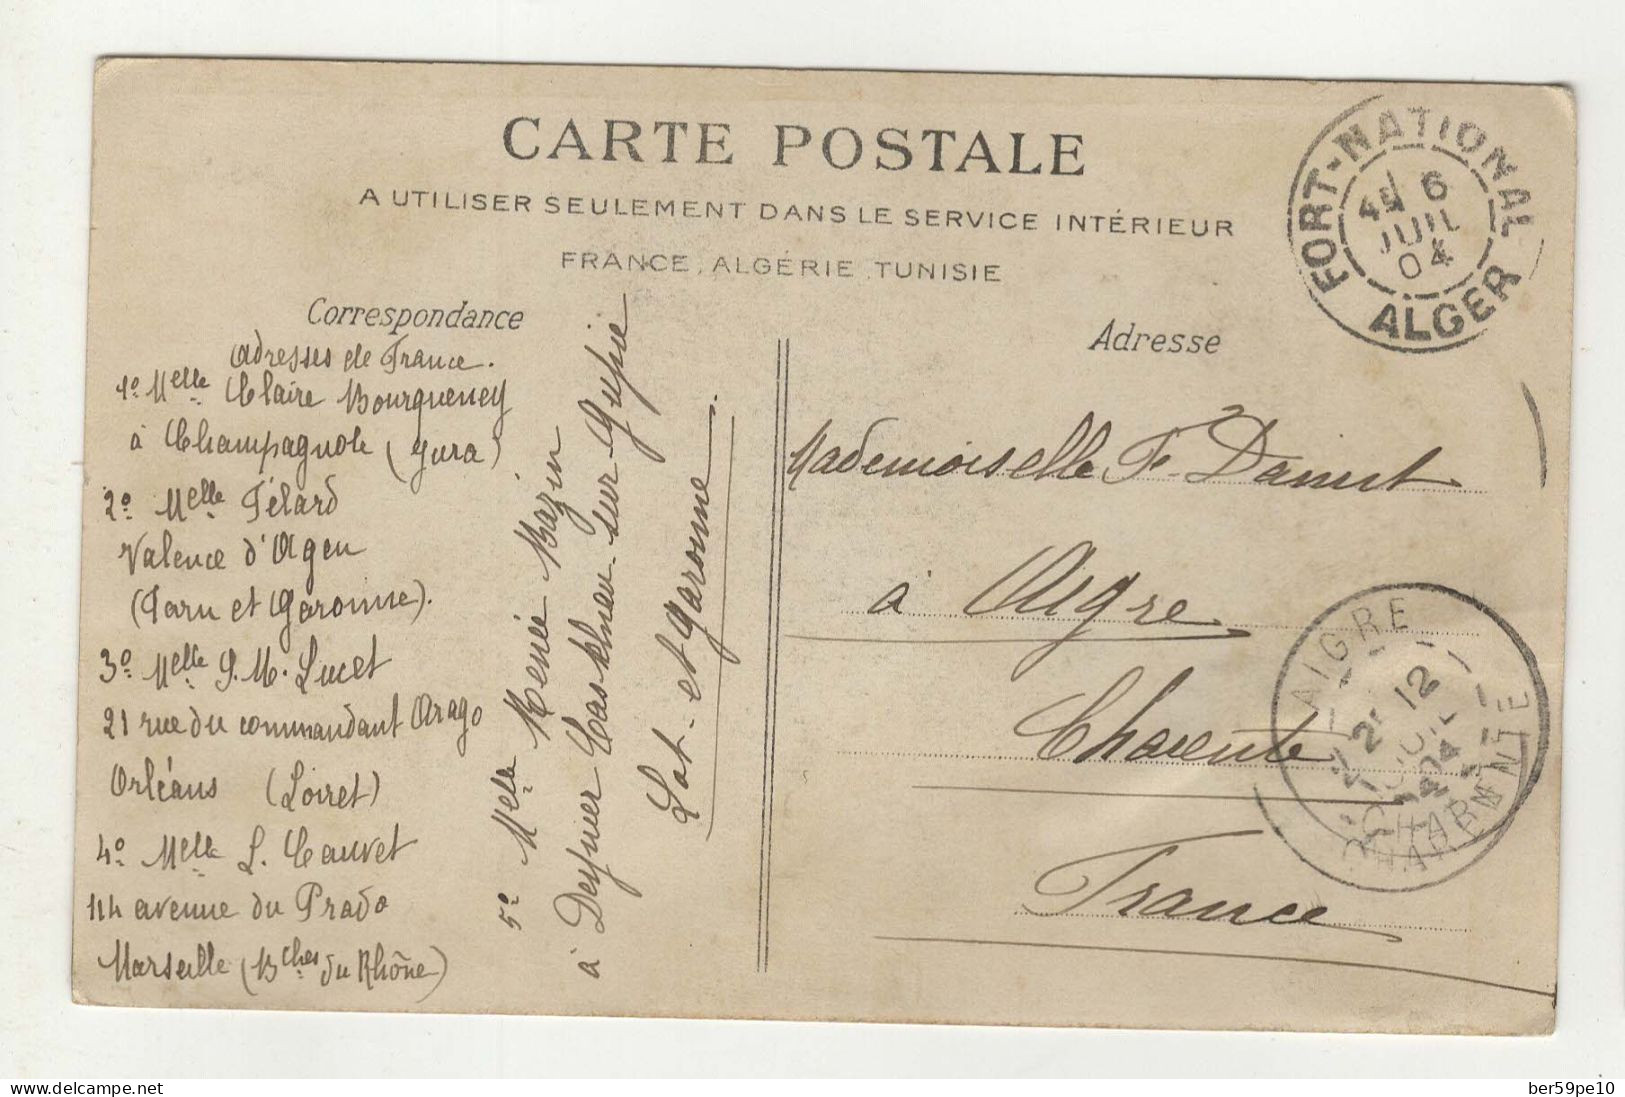 CARTE POSTALE
A UTILISER SEULEMENT DANS LE SERVICE INTÉRIEUR
FRANCE, ALGÉRIE, TUNISIE
Correspondance
Adresses de France.
1º Melle Claire Bourqueney
à Champagnole (Jura)
2º Melle Télard
Valence d'Agen
(Tarn et Garonne).
3º Melle S. M. Lucet
21 rue du commandant Arago
Orléans (Loiret)
4º Melle L. Cauvet
114 avenue du Prado
Marseille (Bches du Rhône)
5º Melle Renée Bazin
à Casteljnau-sur Gupie
Lot-et Garonne.
Adresse
Mademoiselle F.
à Aigre
Charente
France
FORT-NATIONAL
6
JUIL
04
ALGER
AIGRE
12
04
CHARENTE
delcampe.net
ber59pe10